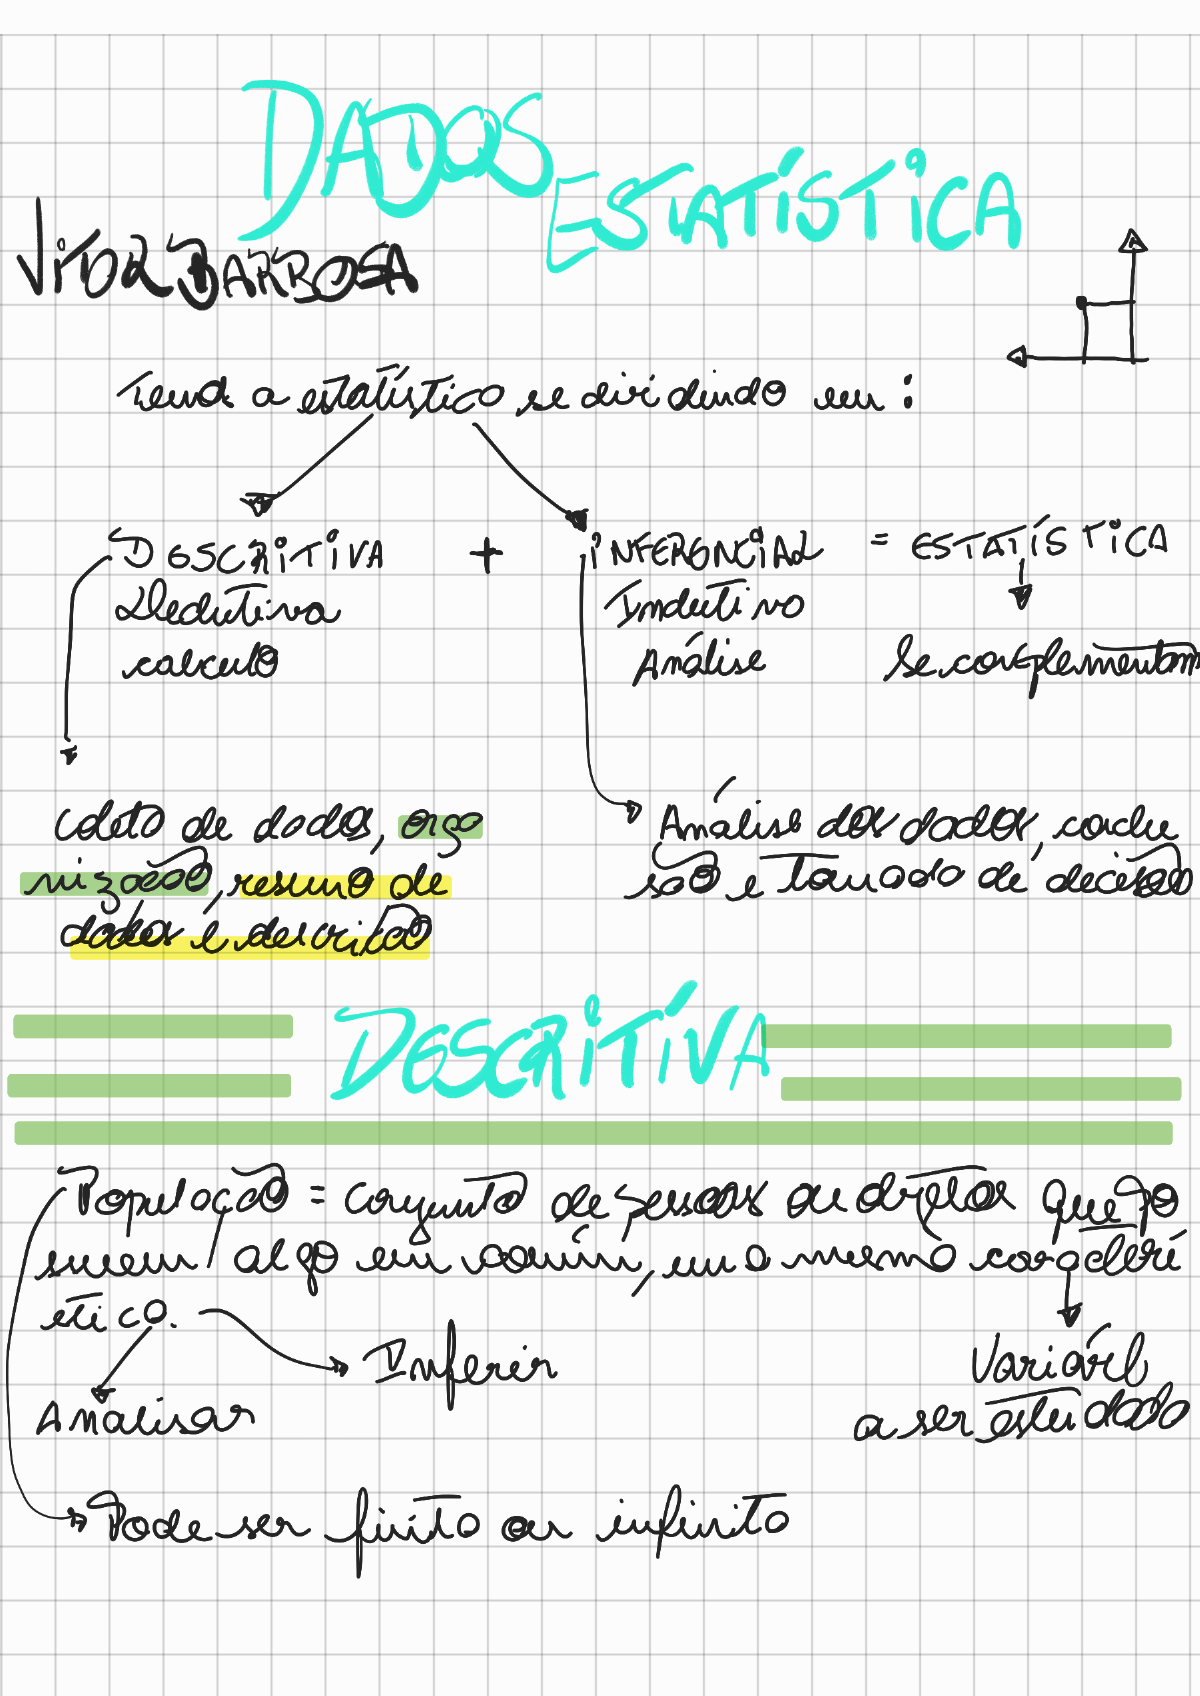 DADOS
ESTATÍSTICA
VITOR BARBOSA
Tendo a estatística se dividindo em:
DESCRITIVA + INFERENCIAL = ESTATÍSTICA
Dedutiva Indutivo
calculo Análise Se complementam
Coleta de dados, orga
nização, resumo de
dados e descrição
Análise dos dados, conclu
são e tomada de decisão
DESCRITÍVA
População = conjunto de pessoas ou objetos que po
suem algo em comum, uma mesma caracterí
stica.
Inferir
Analisar
Variável
a ser estudado
Pode ser finito ou infinito